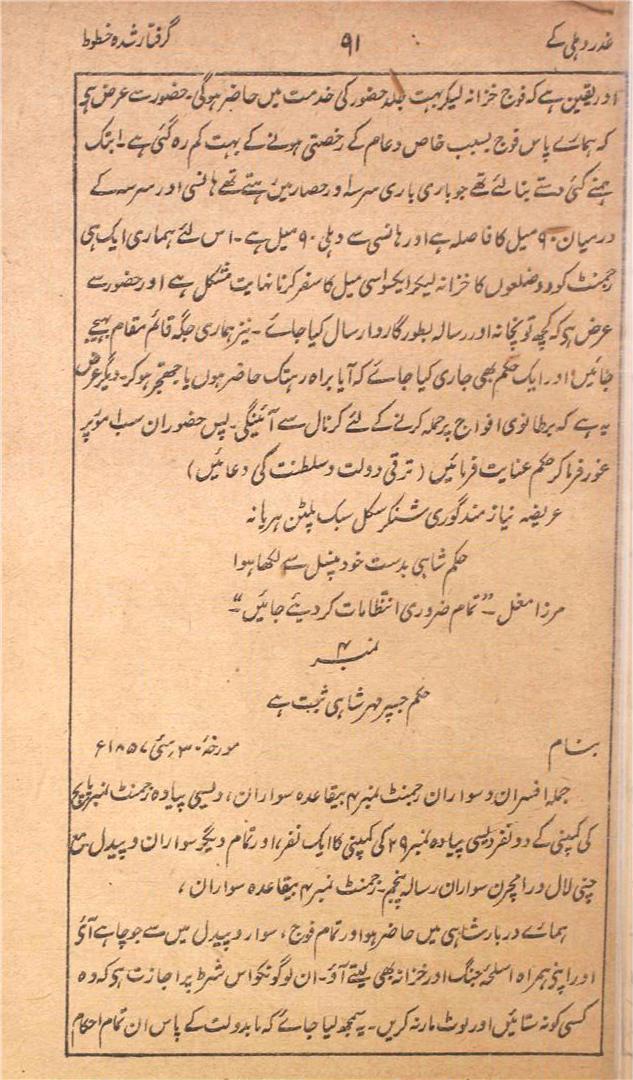 غدر دہلی کے ۹۱ گرفتار شدہ خطوط
اور یقین ہے کہ فوج خزانہ لیکر بہت جلد حضور کی خدمت میں حاضر ہوگی۔ حضور سے عرض ہے
کہ ہمارے پاس فوج بسبب خاص و عام کے رخصتی ہونے کے بہت کم رہ گئی ہے۔ ابتک
ہمنے کئی دستے بنا لئے تھے جو باری باری سرسہ اور حصار میں رہتے تھے ہانسی اور سرسہ کے
درمیان ۹۰ میل کا فاصلہ ہے اور ہانسی سے دہلی ۹۰ میل ہے۔ اس لئے ہماری ایک ہی
رجمنٹ کو دو ضلعوں کا خزانہ لیکر ایکسو اسی میل کا سفر کرنا نہایت مشکل ہے اور حضور سے
عرض ہے کہ کچھ توپخانہ اور رسالہ بطور گارد ارسال کیا جائے۔ نیز ہماری جگہ قائم مقام بھیجے
جائیں اور ایک حکم بھی جاری کیا جائے کہ آیا براہ رہتک حاضر ہوں یا جھجر ہو کر۔ دیگر عرض
یہ ہے کہ برطانوی افواج پر حملہ کرنے کے لئے کرنال سے آئینگی۔ پس حضور ان سب امور پر
غور فرما کر حکم عنایت فرمائیں (ترقی دولت و سلطنت کی دعائیں)
عریضہ نیازمند گوری شنکر سکل سبک پلٹن ہریانہ
حکم شاہی بدست خود پنسل سے لکھا ہوا
مرزا مغل۔ "تمام ضروری انتظامات کر دیئے جائیں"۔
نمبر ۴
حکم جسپر مہر شاہی ثبت ہے
بنام مورخہ ۳۰ مئی ۱۸۵۷ء
جملہ افسران و سواران رجمنٹ نمبر ۴ بیقاعدہ سواران، دیسی پیادہ رجمنٹ نمبر پانچ
کی کمپنی کے دو نفر دیسی پیادہ نمبر ۲۹ کی کمپنی کا ایک نفر، اور تمام دیگر سواران و پیدل مع
چنی لال و رامچرن سواران رسالہ پنجم۔ رجمنٹ نمبر ۴ بیقاعدہ سواران،
ہمارے دربار شاہی میں حاضر ہو اور تمام فوج، سوار و پیدل میں سے جو چاہے آئے
اور اپنی ہمراہ اسلحہ جنگ اور خزانہ بھی لیتے آؤ۔ ان لوگونکو اس شرط پر اجازت ہے کہ وہ
کسی کو نہ ستائیں اور لوٹ مار نہ کریں۔ یہ سمجھ لیا جائے کہ مابدولت کے پاس ان تمام احکام